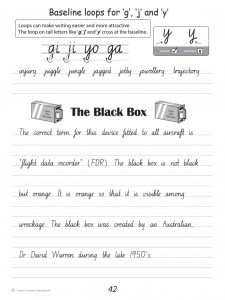 Baseline loops for 'g', 'j' and 'y'
Loops can make writing easier and more attractive.
The loop on tail letters like 'g', 'j' and 'y' cross at the baseline.
y y
gi ji yo ga
injury juggle jungle jagged jetty jewellery trajectory
The Black Box
The correct term for this device fitted to all aircraft is
"flight data recorder" (FDR). The black box is not black
but orange. It is orange so that it is visible among
wreckage. The black box was created by an Australian,
Dr David Warren during the late 1950's.
42